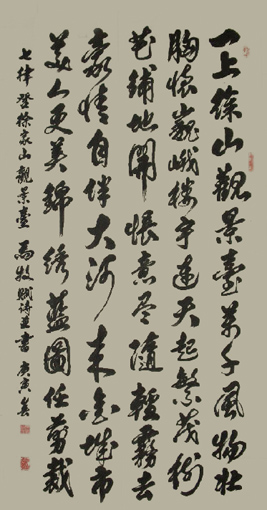 一上徐山觀景臺萬千風物壯
胸懷巍峨樓宇連天起繁茂樹
花鋪地開悵意尽隨輕霧去
豪情自伴大河來金城市
美人更美錦綉藍圖任剪裁
七律登徐家山觀景臺 馬牧賦詩並書 庚寅春